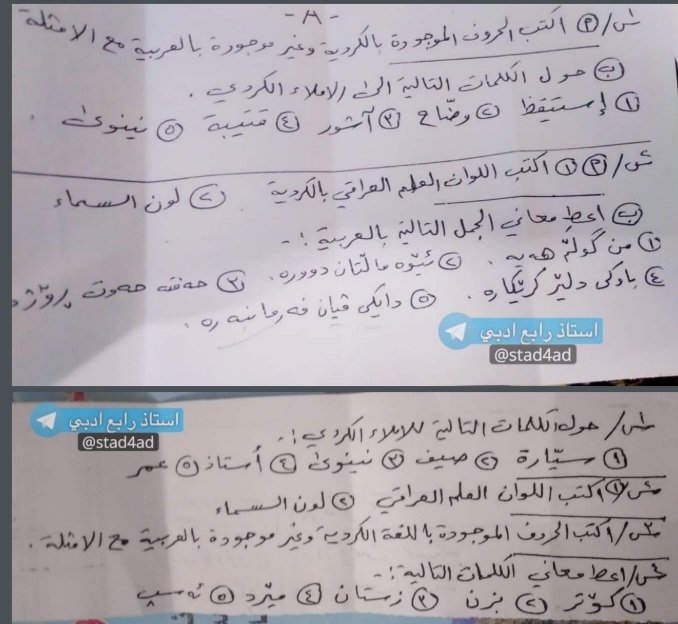 - ٨ -
س/ (P) اكتب الحروف الموجودة بالكردية وغير موجودة بالعربية مع الامثلة
(ب) حول الكلمات التالية الى الاملاء الكردي .
(١) إستيقظ (٢) وضّاح (٣) آشور (٤) قتيبة (٥) نينوى .
س/ (P) (١) اكتب اللوان العلم العراقي بالكردية (٢) لون السماء
(ب) اعطِ معاني الجمل التالية بالعربية :-
(١) من گوڵم هەیە . (٢) ئێوە ماڵتان دوورە . (٣) حەفتە حەوت ڕۆژە
(٤) باوكی دلێر كرێكارە . (٥) دایكی ڤیان فەرمانبەرە .
استاذ رابع ادبي
@stad4ad
استاذ رابع ادبي
@stad4ad
س/ حول الكلمات التالية للاملاء الكردي :-
(١) سيّارة (٢) صيف (٣) نينوى (٤) أستاذ (٥) عمر
س/ (١) اكتب اللوان العلم العراقي (٢) لون السماء
س/ اكتب الحروف الموجودة باللغة الكردية وغير موجودة بالعربية مع الامثلة .
س/ اعط معاني الكلمات التالية :-
(١) كۆتر (٢) بزن (٣) زستان (٤) مێرد (٥) ئەسپ